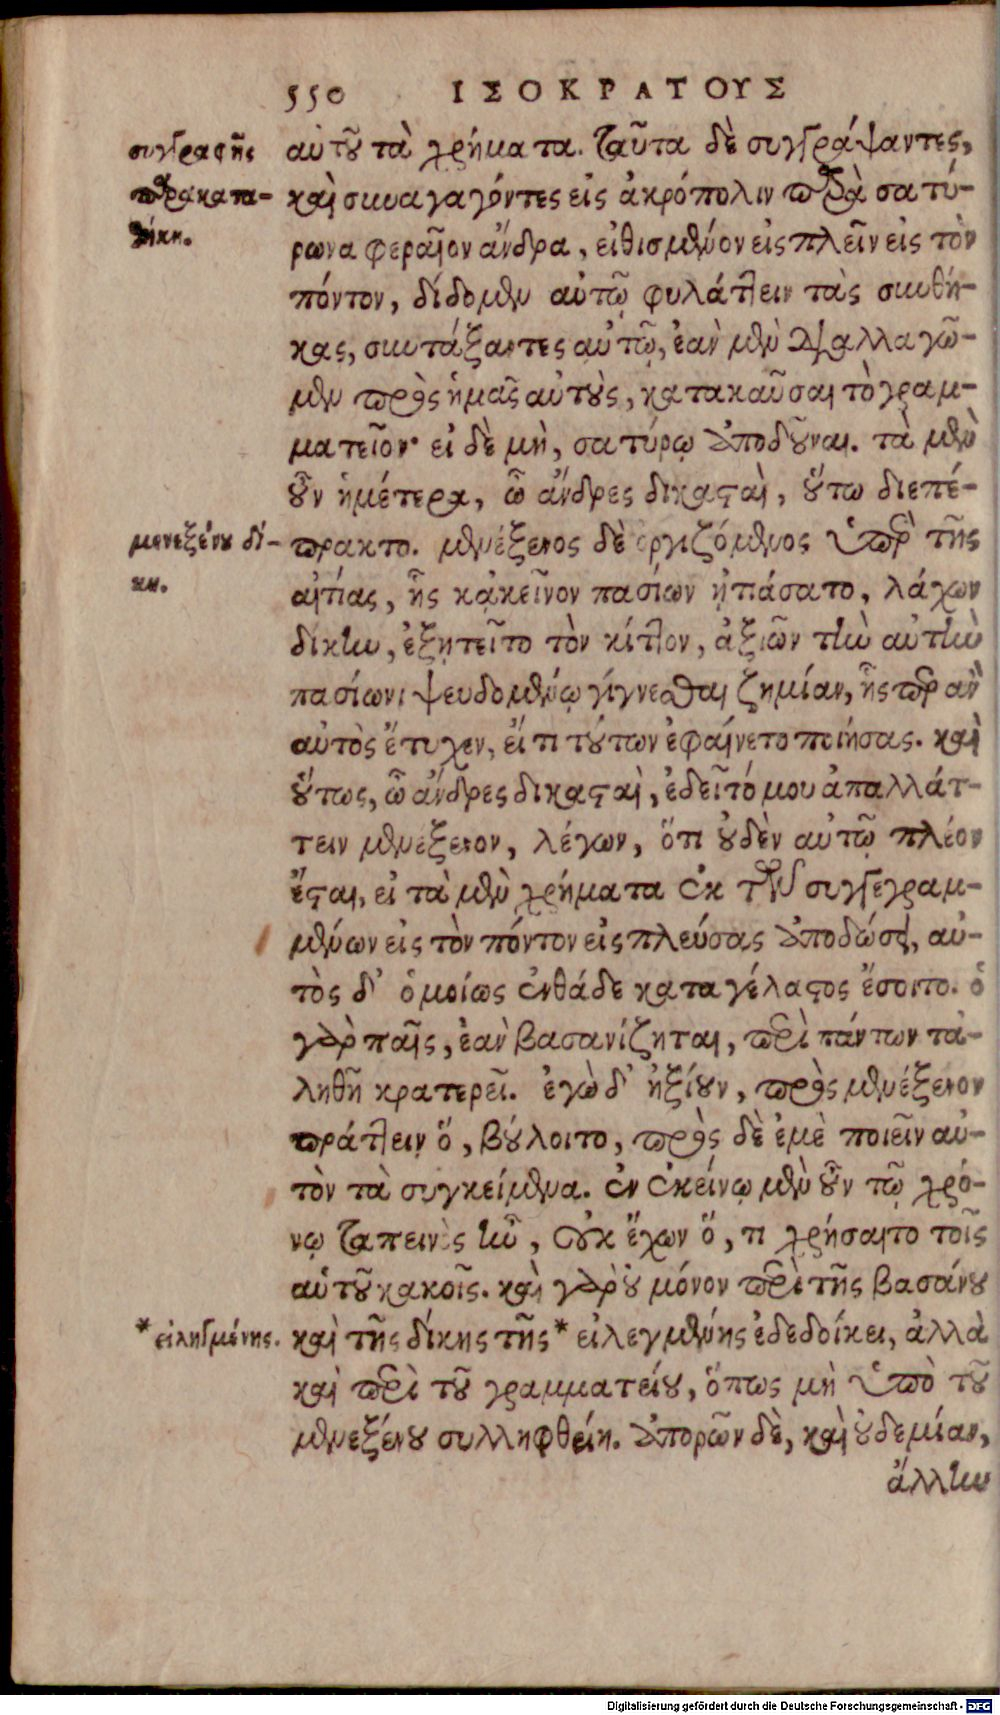 550 ΙΣΟΚΡΑΤΟΥΣ
συγγραφῆς
παρακατα-
θήκη.
αὐτοῦ τὰ χρήματα. ταῦτα δὲ συγγράψαντες,
καὶ συναγαγόντες εἰς ἀκρόπολιν παρὰ σατύ-
ρωνα φεραῖον ἄνδρα, εἰθισμένον εἰσπλεῖν εἰς τὸν
πόντον, δίδομεν αὐτῷ φυλάττειν τὰς συνθή-
κας, συντάξαντες αὐτῷ, ἐὰν μὲν διαλλαγῶ-
μεν πρὸς ἡμᾶς αὐτοὺς, κατακαῦσαι τὸ γραμ-
ματεῖον· εἰ δὲ μὴ, σατύρῳ ἀποδοῦναι. τὰ μὲν
οὖν ἡμέτερα, ὦ ἄνδρες δικασταὶ, οὕτω διεπέ-
μενεξένου δί-
κη.
πρακτο. μενέξενος δὲ ὀργιζόμενος ὑπὲρ τῆς
αἰτίας, ἧς κἀκεῖνον πασίων ᾐτιάσατο, λάχων
δίκην, ἐξῃτεῖτο τὸν κίττον, ἀξιῶν τὴν αὐτὴν
πασίωνι ψευδομένῳ γίγνεσθαι ζημίαν, ἧς περ ἂν
αὐτὸς ἔτυχεν, εἴ τι τούτων ἐφαίνετο ποιήσας. καὶ
οὕτως, ὦ ἄνδρες δικασταὶ, ἐδεῖτό μου ἀπαλλάτ-
τειν μενέξενον, λέγων, ὅτι οὐδὲν αὐτῷ πλέον
ἔσται, εἰ τὰ μὲν χρήματα ἐκ τῶν συγγεγραμ-
μένων εἰς τὸν πόντον εἰσπλεύσας ἀποδώσει, αὐ-
τὸς δ' ὁμοίως ἐνθάδε καταγέλαστος ἔσοιτο. ὁ
γὰρ παῖς, ἐὰν βασανίζηται, περὶ πάντων τἀ-
ληθῆ κρατερεῖ. ἐγὼ δ' ἠξίουν, πρὸς μενέξενον
πράττειν ὅ, βούλοιτο, πρὸς δὲ ἐμὲ ποιεῖν αὐ-
τὸν τὰ συγκείμενα. ἐν ἐκείνῳ μὲν οὖν τῷ χρό-
νῳ ταπεινὸς ἦν, οὐκ ἔχων ὅ, τι χρήσαιτο τοῖς
αὑτοῦ κακοῖς. καὶ γὰρ οὐ μόνον περὶ τῆς βασάνου
* εἰληγμένης.
καὶ τῆς δίκης τῆς * εἰλεγμένης ἐδεδοίκει, ἀλλὰ
καὶ περὶ τοῦ γραμματείου, ὅπως μὴ ὑπὸ τοῦ
μενεξένου συλληφθείη. ἀπορῶν δὲ, καὶ οὐδεμίαν,
ἄλλην
Digitalisierung gefördert durch die Deutsche Forschungsgemeinschaft - DFG